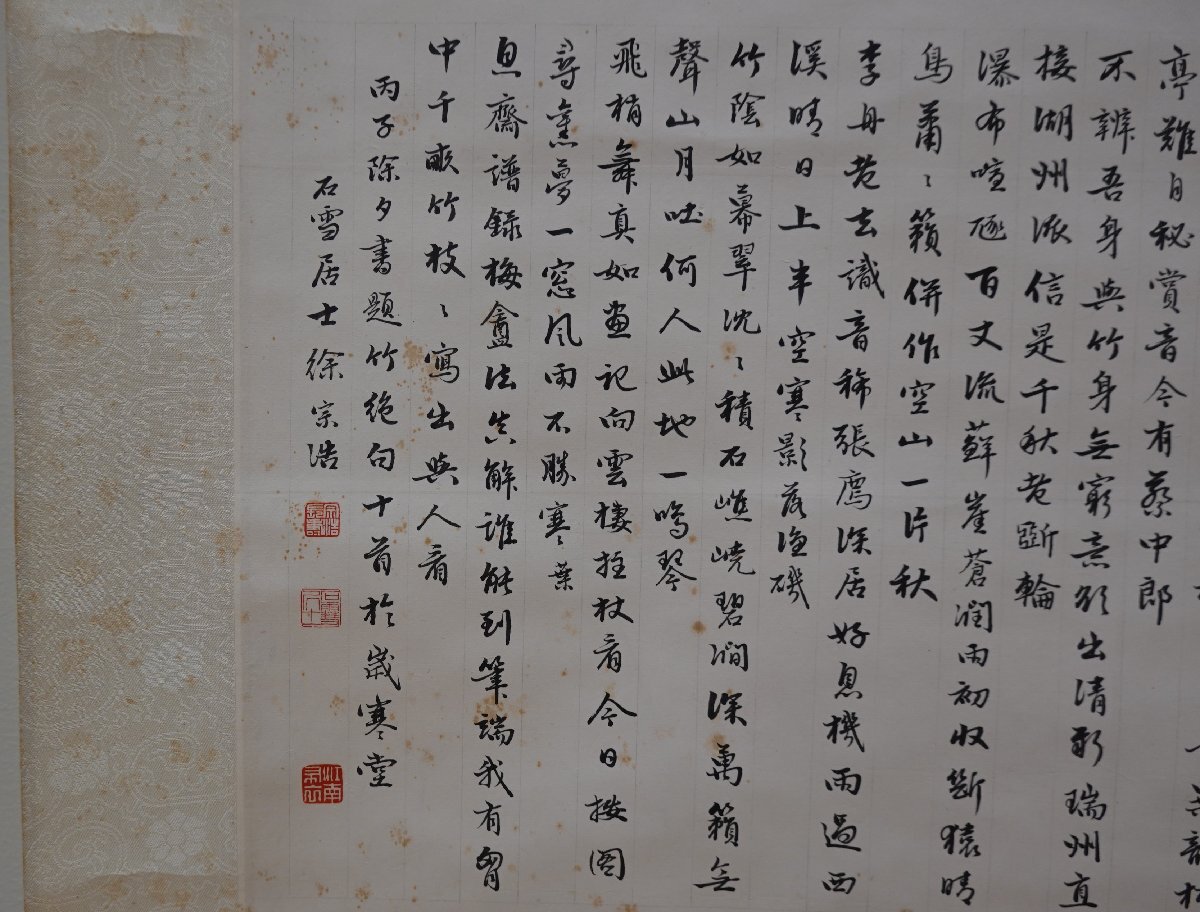 亭難日秘賞音今有蔡中郎
不辨吾身與竹身無窮意
出清新瑞州直
接湖州派信是千秋老斲輪
瀑布喧豗百丈流蘚崖蒼潤雨初收斷猿晴
鳥蕭〻籟併作空山一片秋
李丹老去識音稀張廌深居好息機雨過西
溪晴日上半空寒影落漁磯
竹陰如幕翠沈〻積石嶕嶢碧澗深萬籟無
聲山月吐何人此地一鳴琴
飛梢舞真如畫記向雲棲拄杖看今日披圖
尋舊夢一窓風雨不勝寒葉
息齋譜錄梅盦法真解誰能到筆端我有胷
中千畝竹枝〻寫出與人看
丙子除夕書題竹絶句十首於歲寒堂
石雪居士徐宗浩
江南